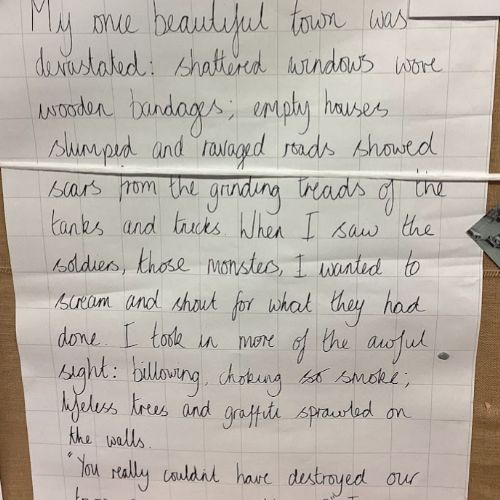 My once beautiful town was
devastated: shattered windows wore
wooden bandages; empty houses
slumped and ravaged roads showed
scars from the grinding treads of the
tanks and trucks. When I saw the
soldiers, those monsters, I wanted to
scream and shout for what they had
done. I took in more of the awful
sight: billowing, choking so smoke;
lifeless trees and graffiti sprawled on
the walls.
"You really couldn't have destroyed our